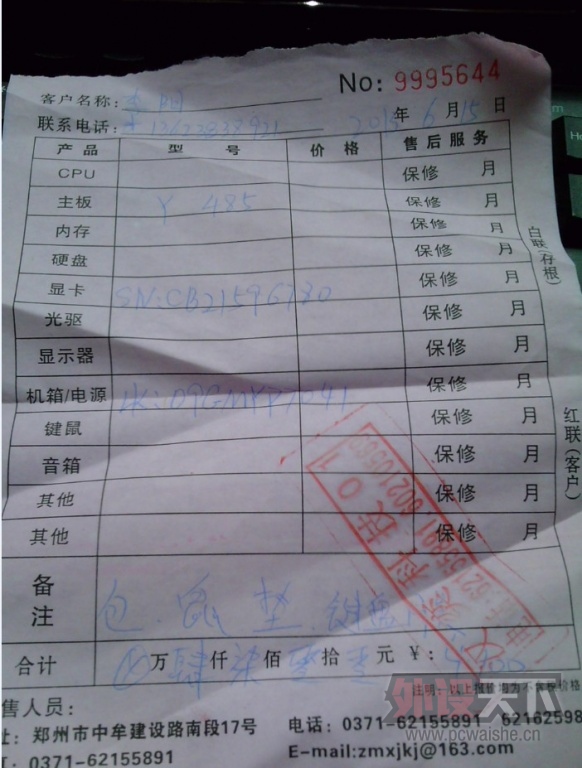 No: 9995644
客户名称:
联系电话: 年 6 月 15 日
产品 型号 价格 售后服务
CPU 保修 月
主板 Y 485 保修 月
内存 保修 月
硬盘 保修 月
显卡 SN:CB21596780 保修 月
光驱 保修 月
显示器 保修 月
机箱/电源 保修 月
键鼠 保修 月
音箱 保修 月
其他 保修 月
其他 保修 月
白联(存根)
红联(客户)
备注 包.鼠.垫.键盘
合计 万肆仟柒佰 拾 元 ¥:
注明:以上报价均为不含税价格
售人员:
址: 郑州市中牟建设路南段17号 电话: 0371-62155891 62162598
0371-62155891 E-mail:zmxjkj@163.com
外设天下
www.pcwaishe.cn